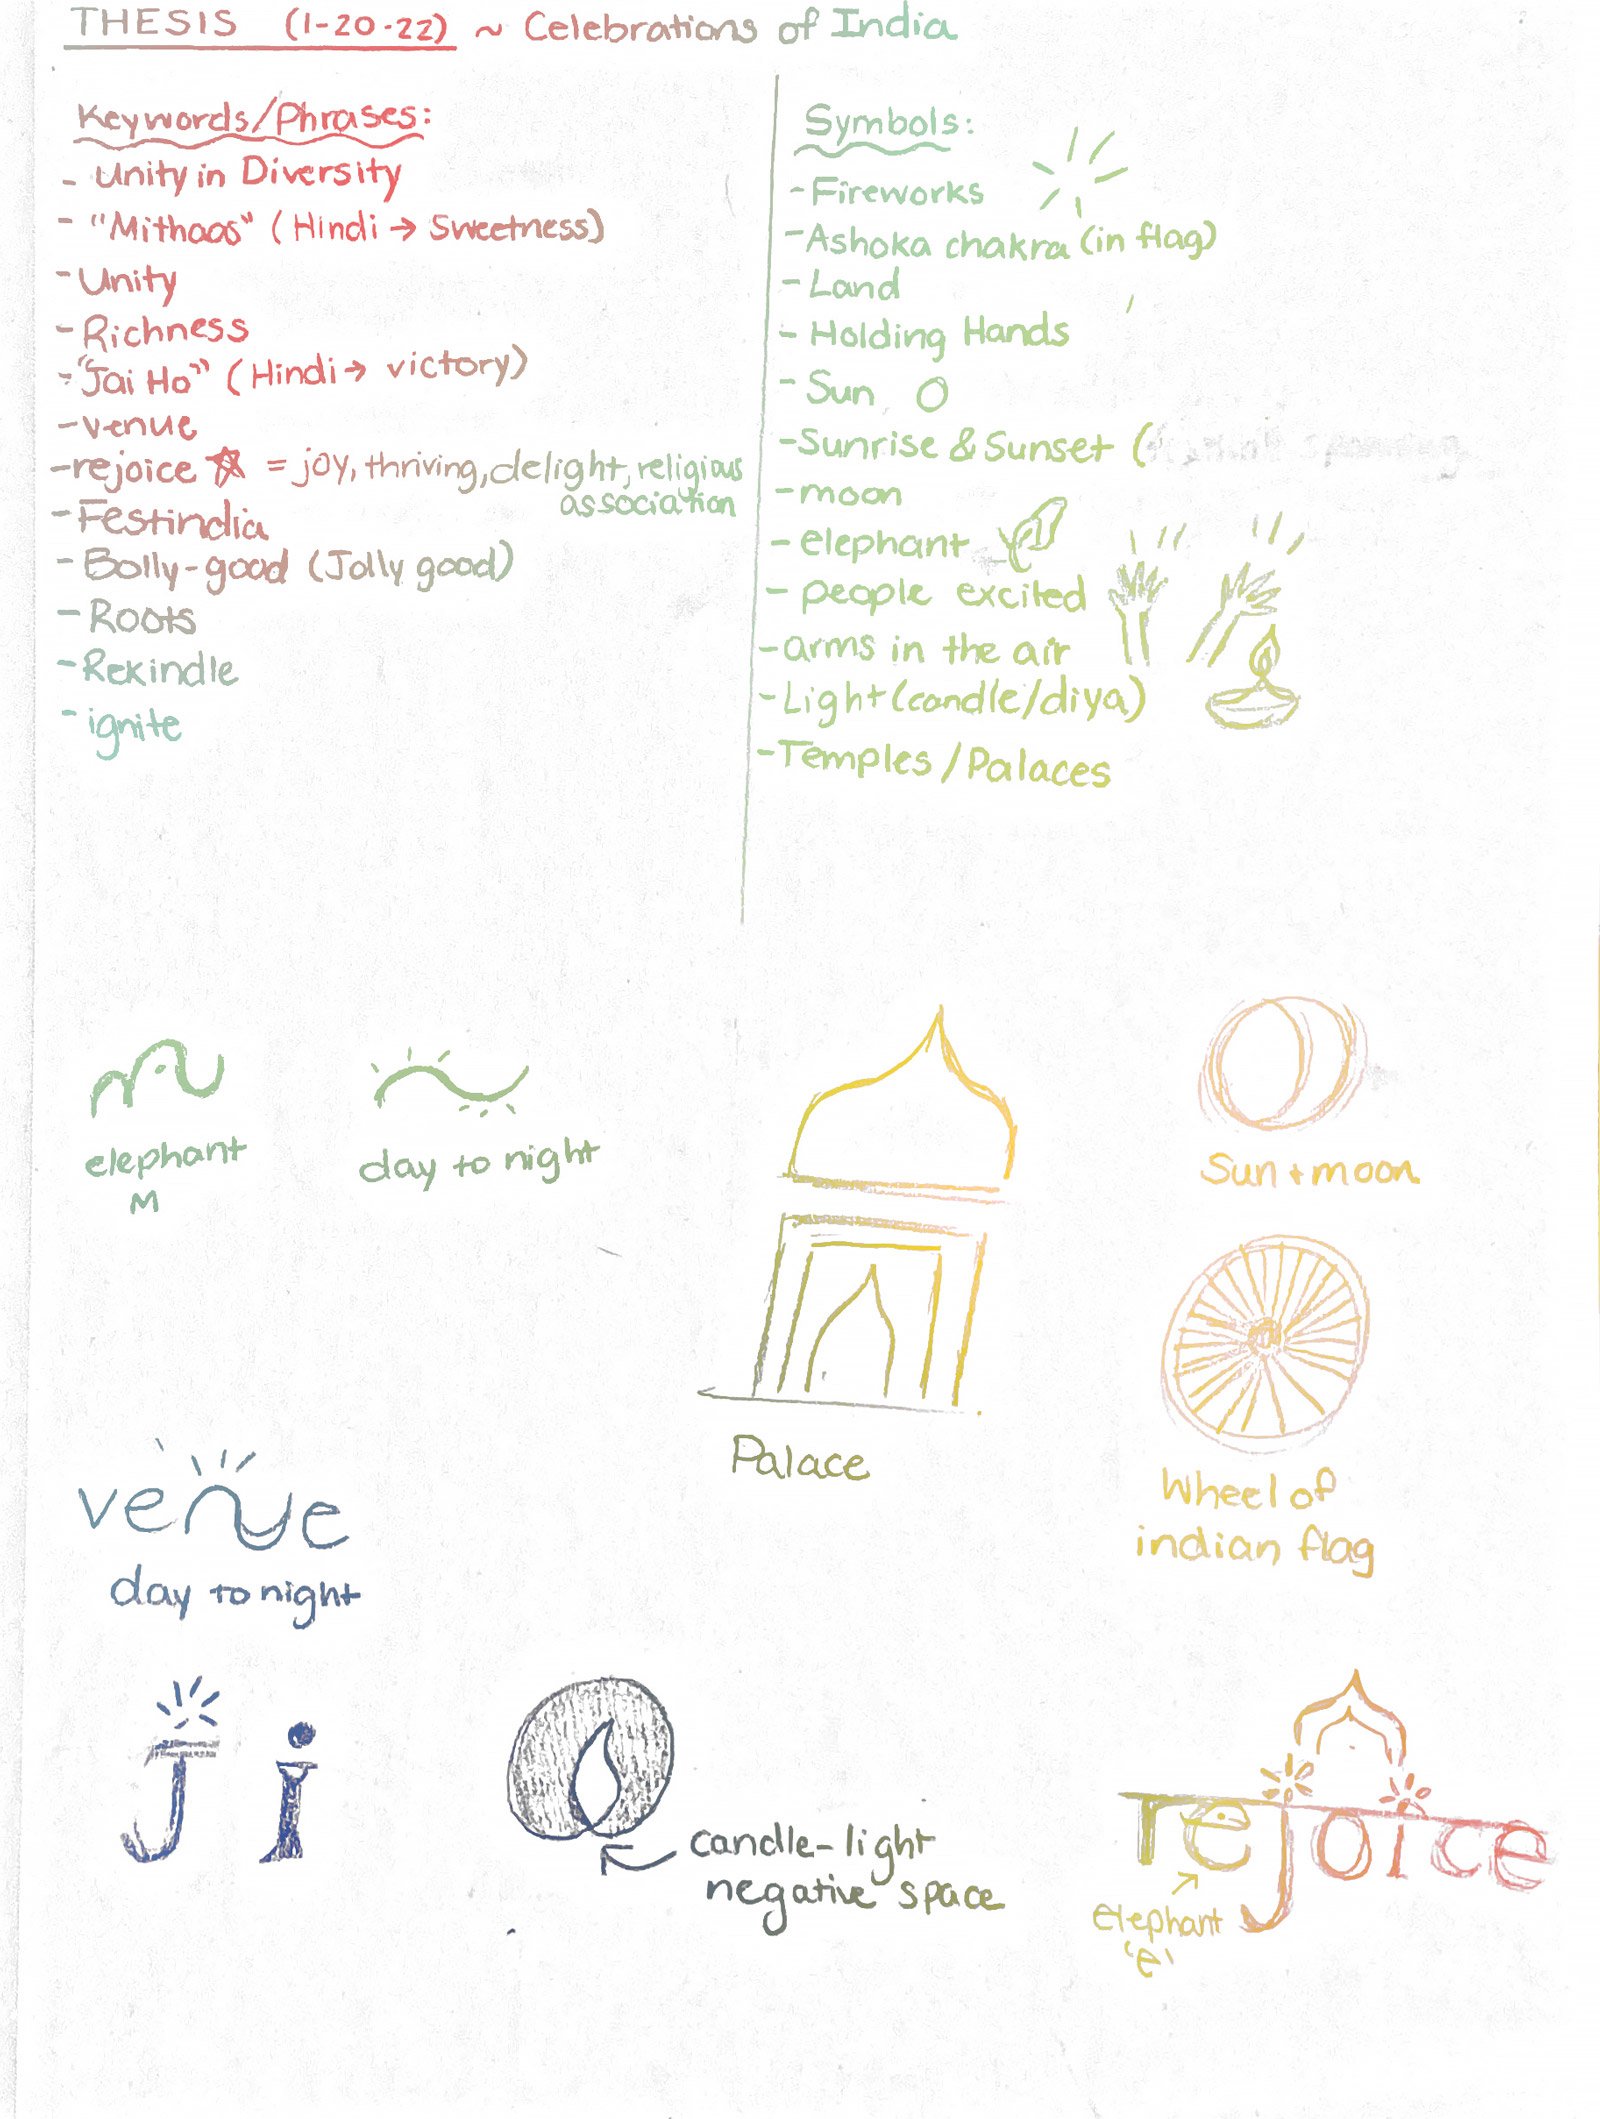 THESIS (1-20-22) ~ Celebrations of India
Keywords/Phrases:
- Unity in Diversity
- "Mithaas" (Hindi → Sweetness)
- Unity
- Richness
- "Jai Ho" (Hindi → victory)
- venue
- rejoice ☆ = joy, thriving, delight, religious
association
- Festindia
- Bolly-good (Jolly good)
- Roots
- Rekindle
- ignite
Symbols:
- Fireworks
- Ashoka chakra (in flag)
- Land
- Holding Hands
- Sun
- Sunrise & Sunset (
- moon
- elephant
- people excited
- arms in the air
- Light (candle/diya)
- Temples/Palaces
elephant
M
day to night
Palace
Sun + moon
Wheel of
indian flag
venue
day to night
J i
candle-light
negative space
rejoice
elephant
'e'